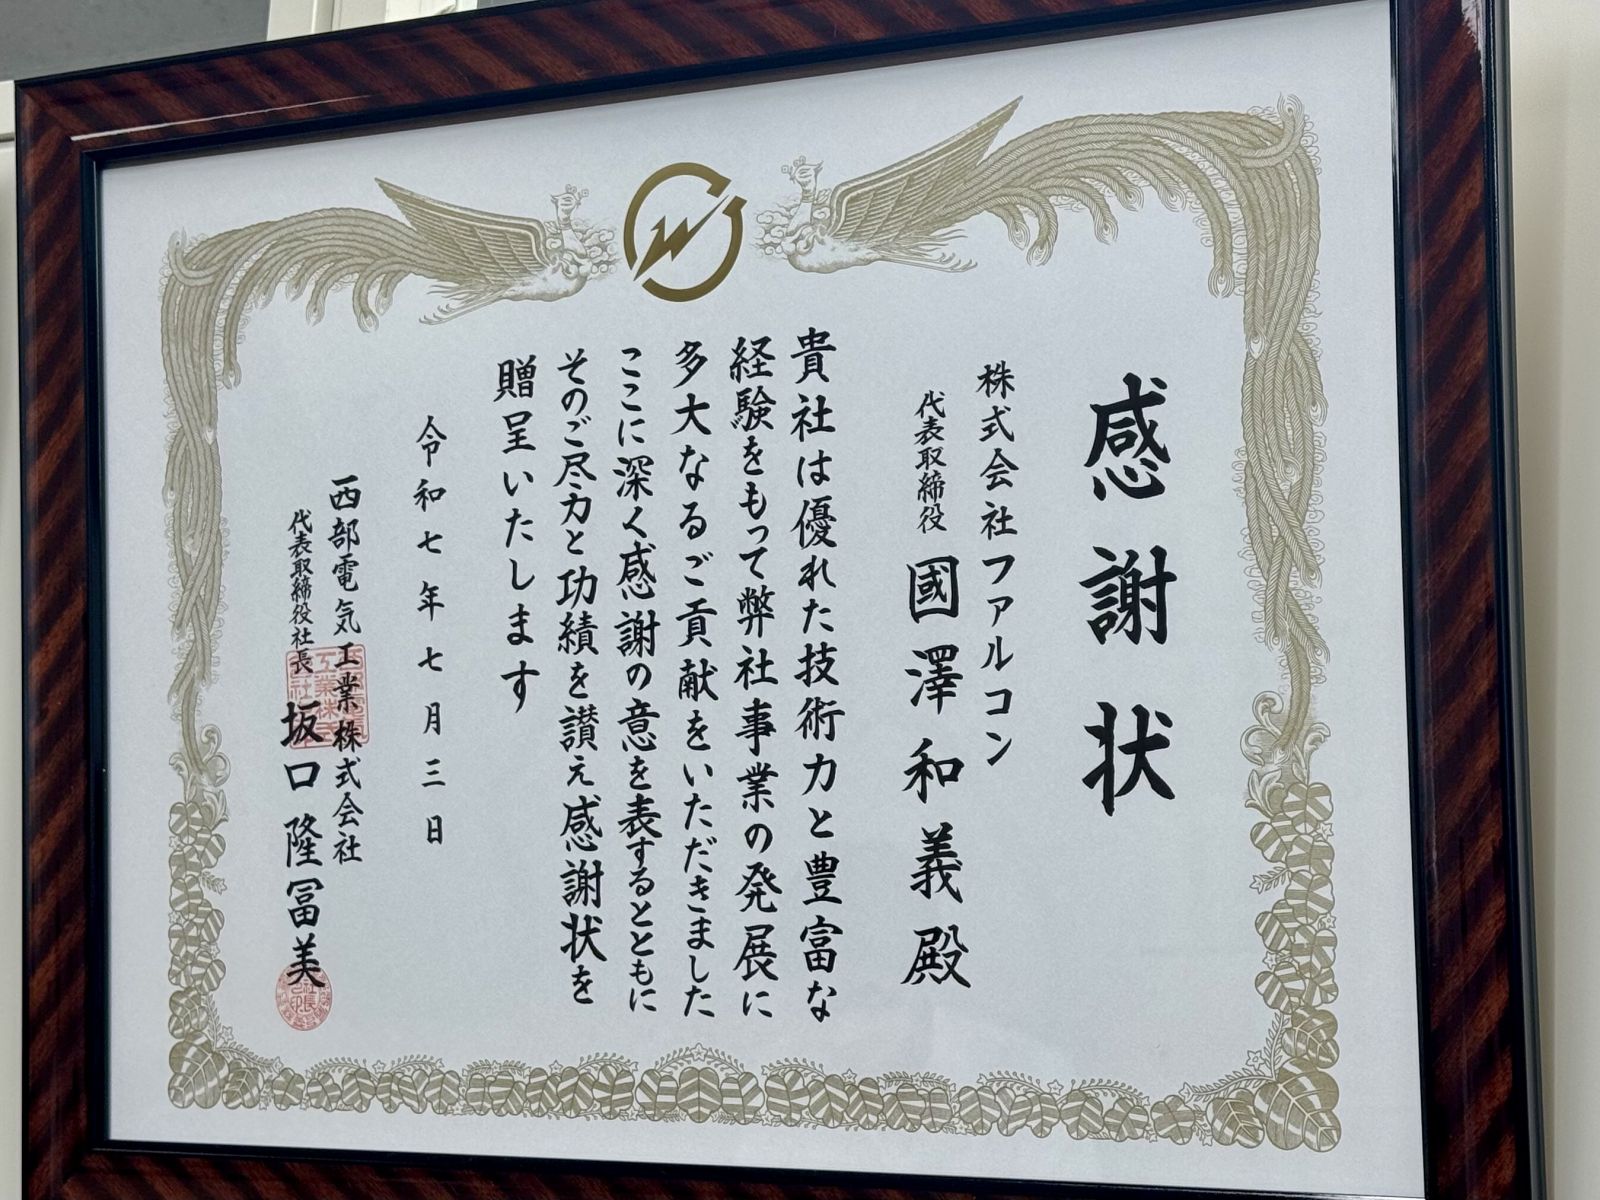 感謝状
株式会社ファルコン
代表取締役 國澤和義殿
貴社は優れた技術力と豊富な
経験をもって弊社事業の発展に
多大なるご貢献をいただきました
ここに深く感謝の意を表するとともに
そのご尽力と功績を讃え感謝状を
贈呈いたします
令和七年七月三日
西部電気工業株式会社
代表取締役社長 坂口隆冨美